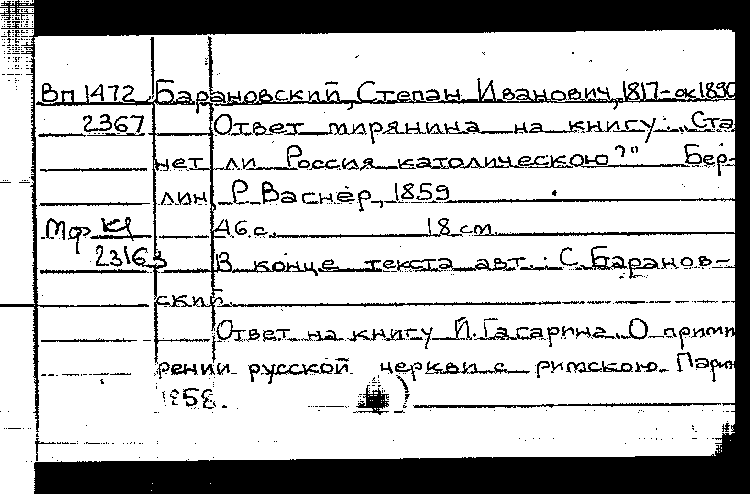 Вп1472 Барановский, Степан Иванович, 1817-ок1890
2367 Ответ мирянина на книгу: „Ста
нет ли Россия католическою?" Бер-
лин, Р. Васнер, 1859
46 с. 18 см
Мф К1
23163 В конце текста авт.: С. Баранов-
ский.
Ответ на книгу И. Гагарина. О прими
рении русской церкви с римскою. Пари
1858.